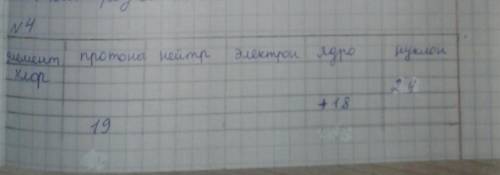 №4
элемент протона нейтр электрон ядро нуклон
хлор
24
+18
19